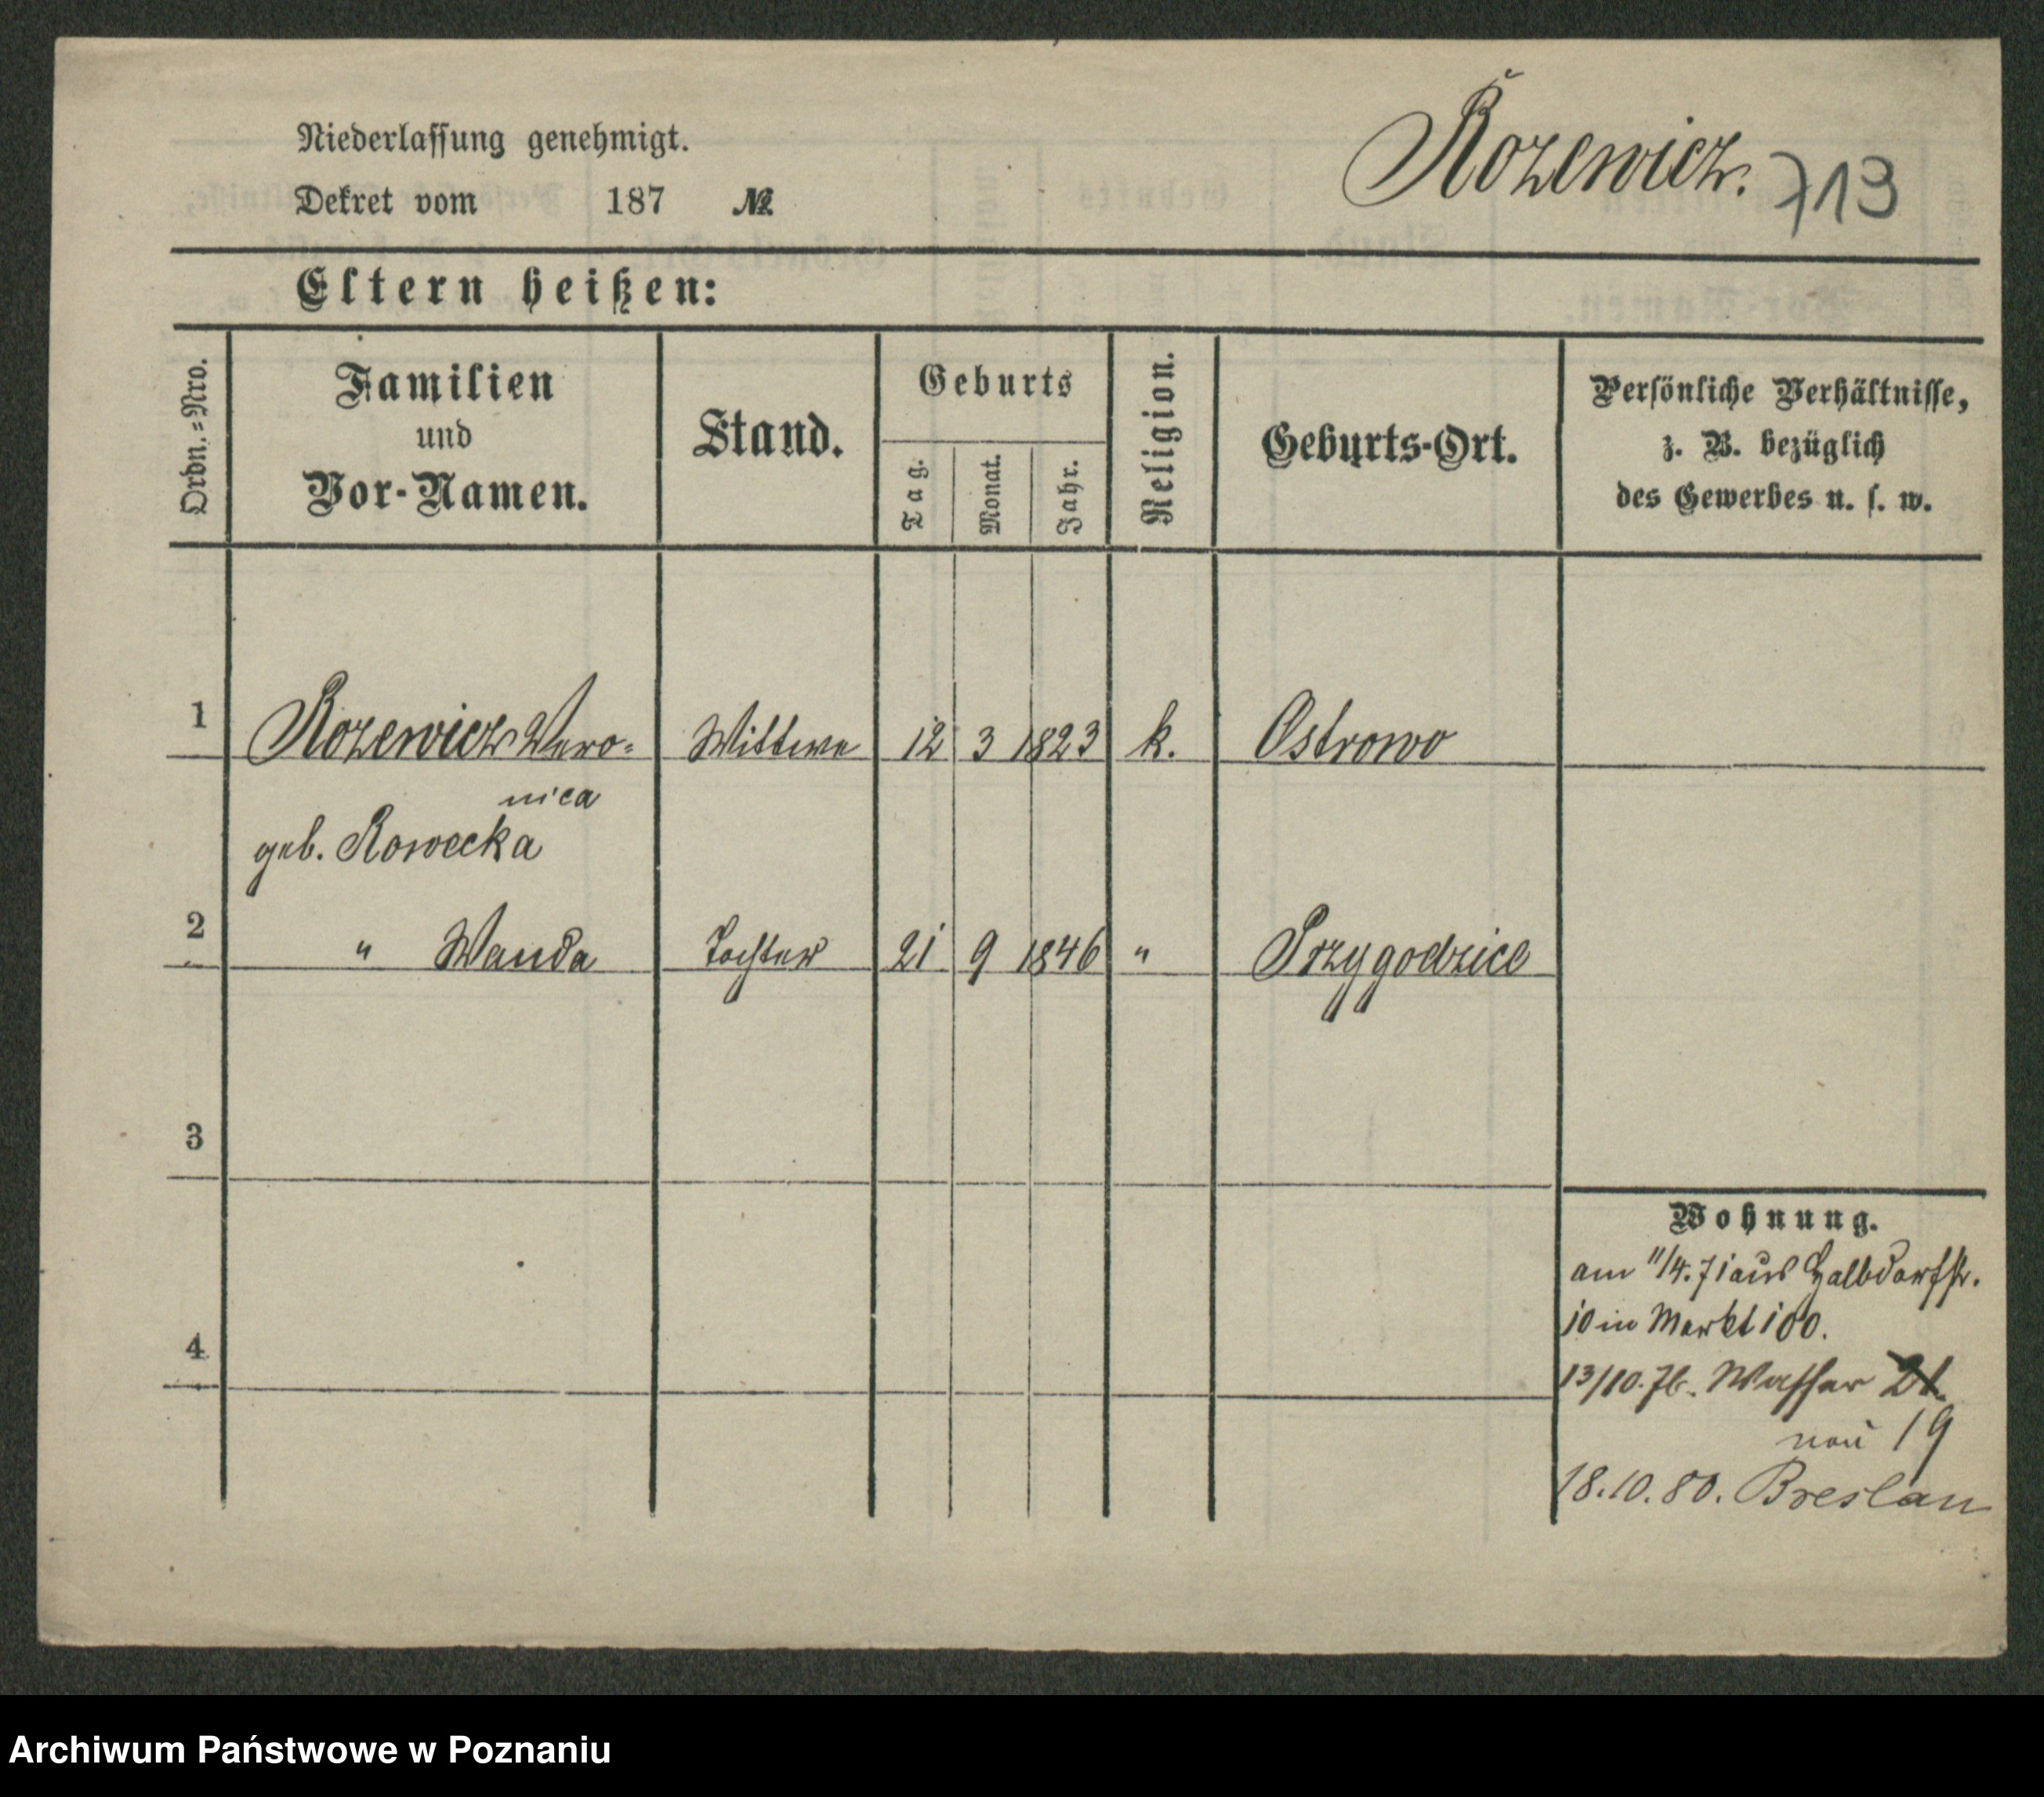 Niederlassung genehmigt.
Dekret vom 187 №
Rozewicz. 713
Eltern heißen:
Ordn.=Nro.
Familien
und
Vor-Namen.
Stand.
Geburts
Tag.
Monat.
Jahr.
Religion.
Geburts-Ort.
Persönliche Verhältnisse,
z. B. bezüglich
des Gewerbes u. s. w.
1 Rozewicz Vero= Wittwe 12 3 1823 k. Ostrowo
nica
geb. Rowecka
2 " Wanda Tochter 21 9 1846 " Przygodzice
3
4
Wohnung.
am 11/4. 71 aus Halbdorfstr.
10 in Markt 100.
13/10. 76. Wasser 21.
neu 19
18.10.80. Breslau
Archiwum Państwowe w Poznaniu